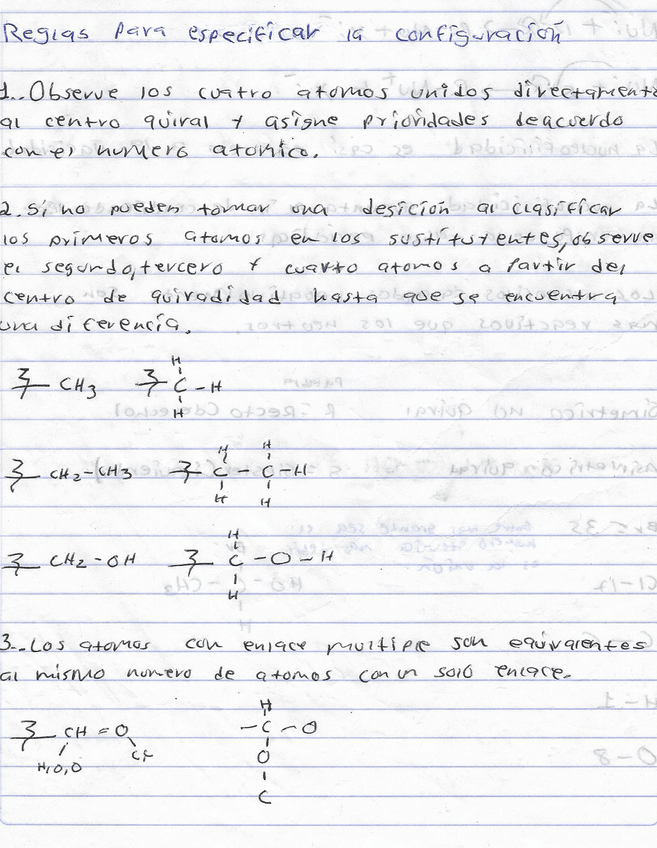 Reglas para especificar la configuración
1.. Observe los cuatro atomos unidos directamente
al centro quiral y asigne prioridades deacuerdo
con el numero atomico.
2. Si no pueden tomar una desición al clasificar
los primeros atomos en los sustitutentes, observe
el segundo, tercero y cuarto atomos a partir del
centro de quiradidad hasta que se encuentra
una diferencia.
CH3 H C - H H
CH2-CH3 H H C - C - H H H
CH2 - OH H C - O - H H
3.. Los atomos con enlace multiple son equivalentes
al mismo numero de atomos con un solo enlace.
CH = O H - C - O
H,O,O O
C